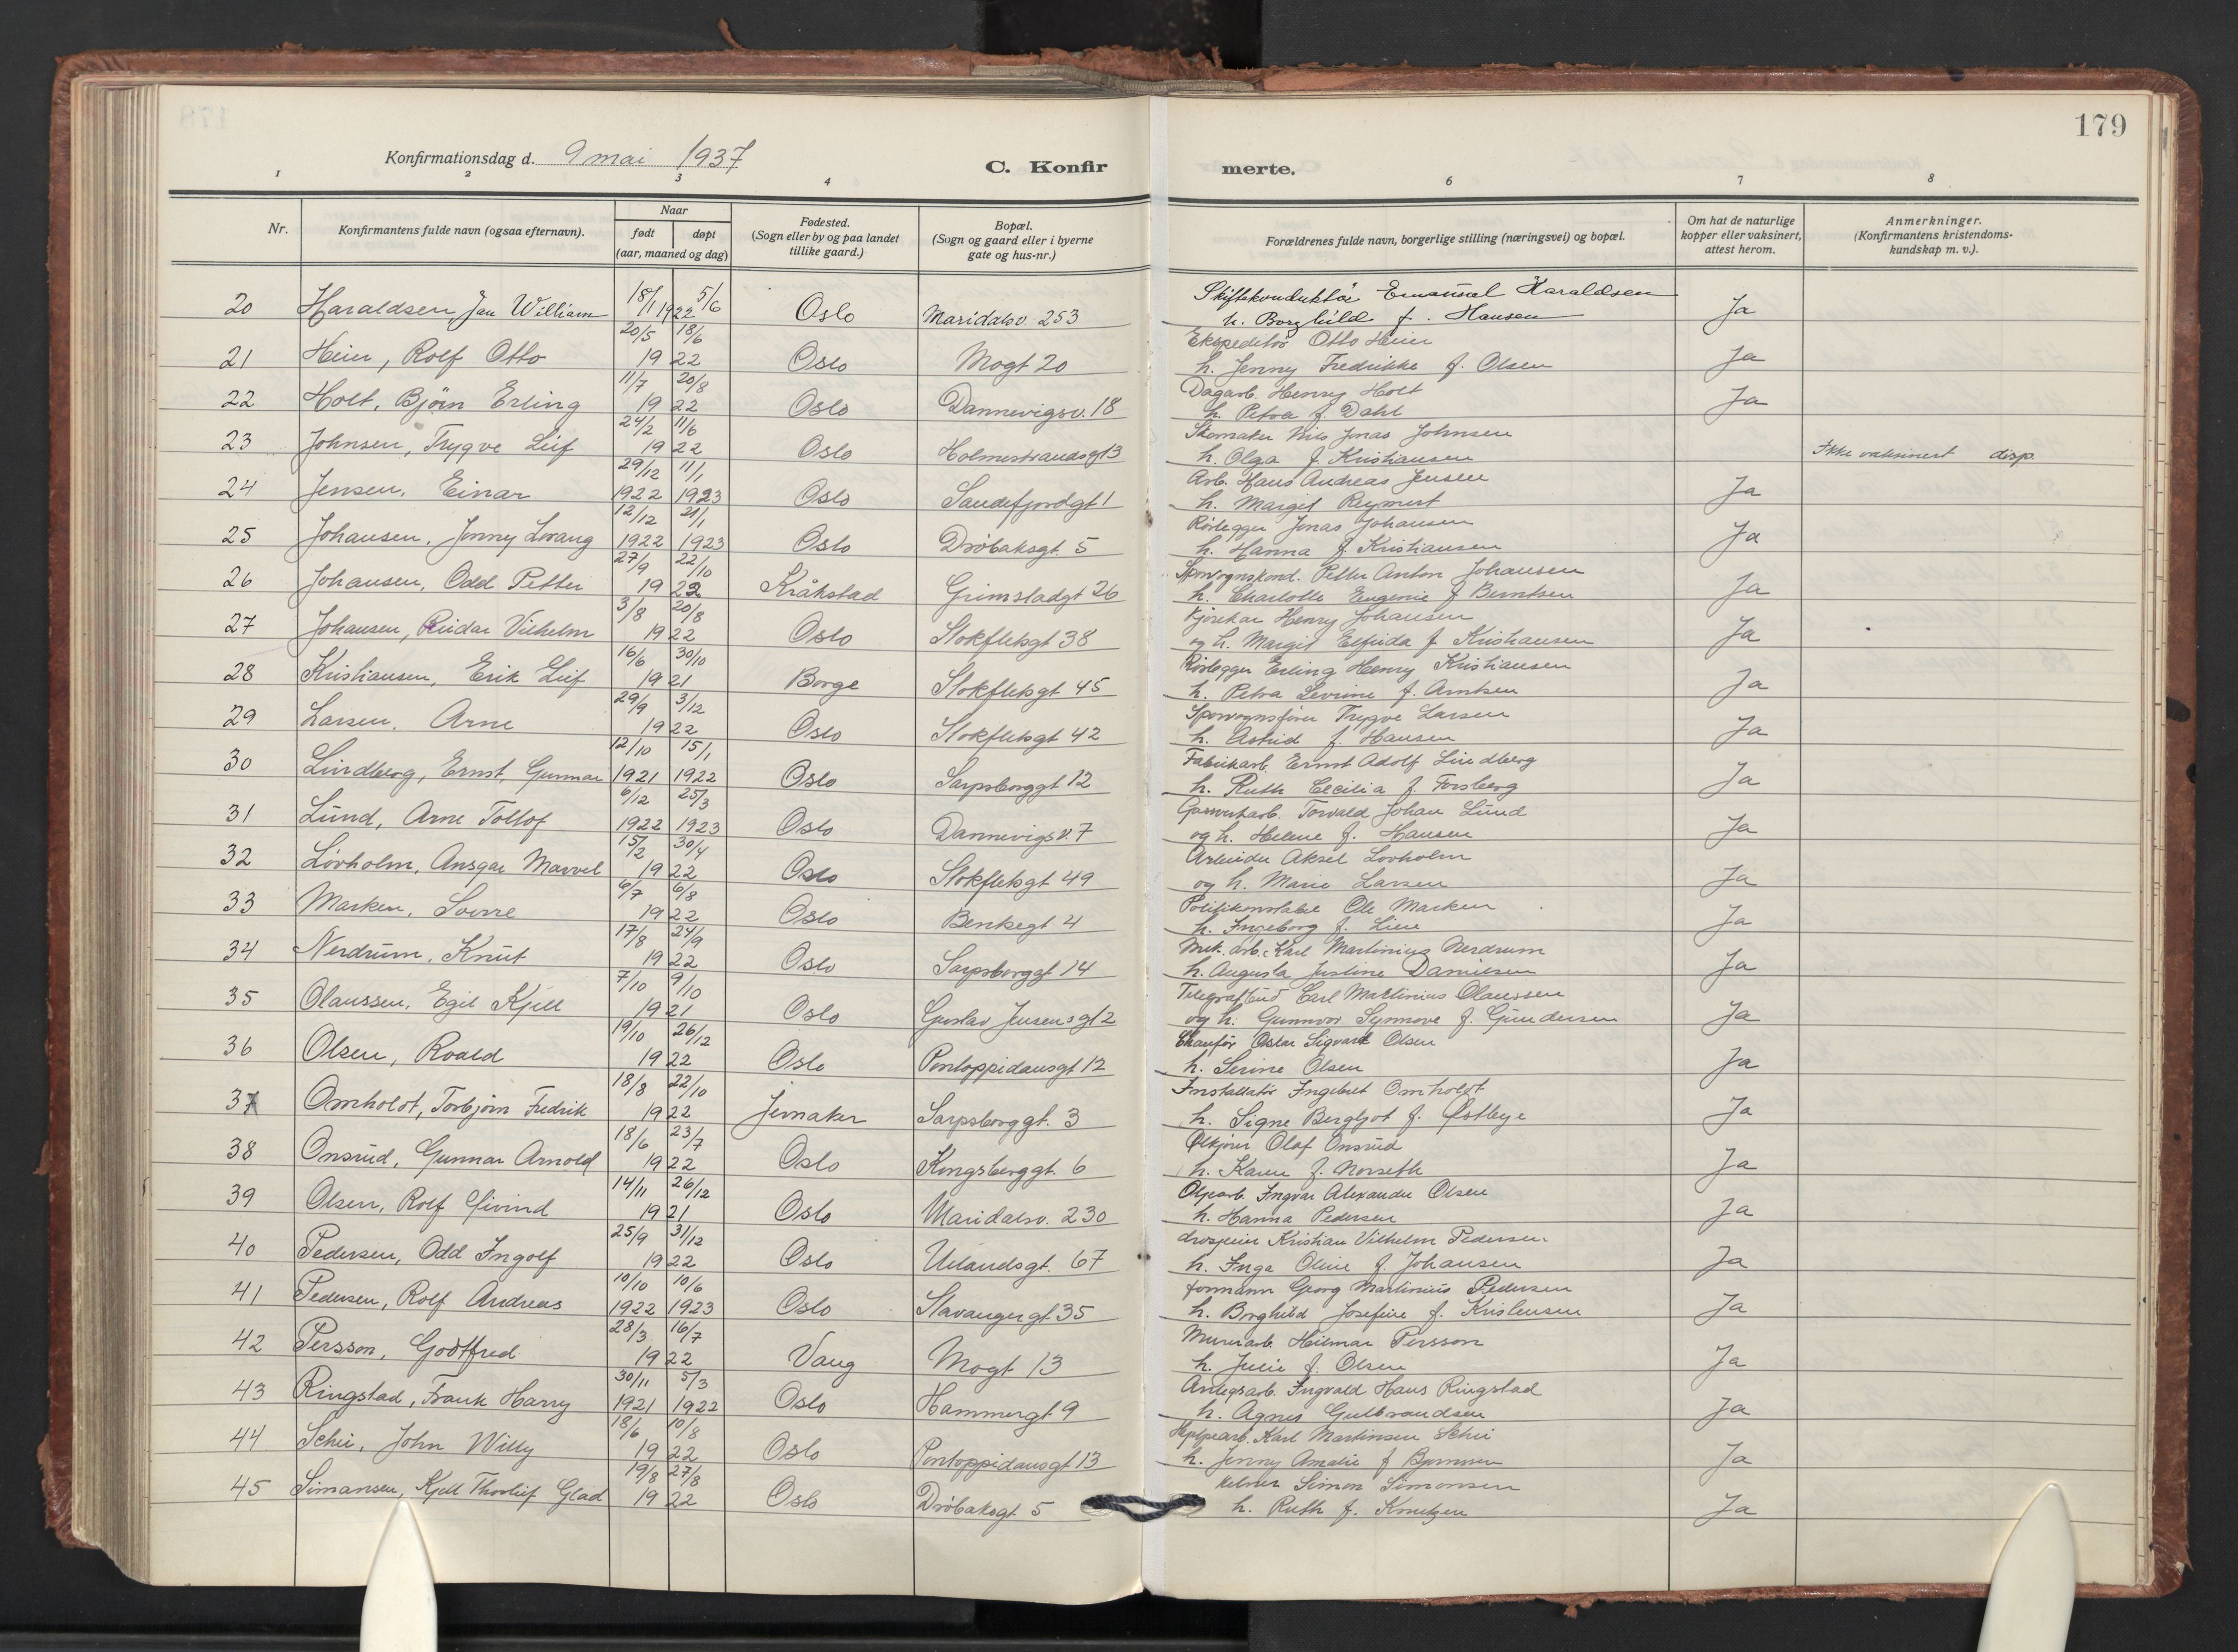 179
Konfirmationsdag d. 9 mai 1937
C. Konfir
merte.
1 2 3 4 6 7 8
Nr.
Konfirmantens fulde navn (ogsaa efternavn).
Naar
født døpt
(aar, maaned og dag)
Fødested.
(Sogn eller by og paa landet
tillike gaard.)
Bopæl.
(Sogn og gaard eller i byerne
gate og hus-nr.)
Forældrenes fulde navn, borgerlige stilling (næringsvei) og bopæl.
Om hat de naturlige
kopper eller vaksinert,
attest herom.
Anmerkninger.
(Konfirmantens kristendoms-
kundskap m. v.).
18/1 5/6 Skiftekonduktör Emanuel Haraldsen
20 Haraldsen, Jan William 1922 Oslo Maridalsv. 253 h. Borghild f. Hansen Ja
20/5 18/6 Ekspeditör Otto Heier
21 Heier, Rolf Otto 1922 Oslo Mogt 20 h. Jenny Fredrikke f. Olsen Ja
11/7 20/8 Dagarb. Henry Holt
22 Holt, Björn Erling 1922 Oslo Dannevigsv. 18 h. Petra f. Dahl Ja
24/2 11/6 Skomaker Nils Jonas Johnsen
23 Johnsen, Trygve Leif 1922 Oslo Holmestrandsgt 3 h. Olga f. Kristiansen Ikke vaksinert disp.
29/12 11/1 Arb. Hans Andreas Jensen
24 Jensen, Einar 1922 1923 Oslo Sandefjordgt 1 h. Margit Reymert Ja
12/12 21/1 Rörlegger Jonas Johansen
25 Johansen, Jonny Lorang 1922 1923 Oslo Dröbaksgt. 5 h. Hanna f. Kristiansen Ja
27/9 22/10 Sporvognskond. Petter Anton Johansen
26 Johansen, Odd Petter 1922 Kråkstad Grimstadgt 26 h. Charlotte Eugenie f Berntsen Ja
3/8 20/8 Kjörekar Henry Johansen
27 Johansen, Reidar Vilhelm 1922 Oslo Stokfletsgt 38 og h. Margit Elfrida f Kristiansen Ja
16/6 30/10 Rörlegger Erling Henry Kristiansen
28 Kristiansen, Erik Leif 1921 Borge Stokfletsgt 45 h. Petra Sevrine f. Arntsen Ja
29/9 3/12 Sporvognsförer Trygve Larsen
29 Larsen, Arne 1922 Oslo Stokfletsgt 42 h. Astrid f. Hansen Ja
12/10 15/1 Fabrikarb. Ernst Adolf Lindberg
30 Lindberg, Ernst Gunnar 1921 1922 Oslo Sarpsborggt 12 h. Ruth Cecilia f. Forsberg Ja
6/12 25/3 Gassverkarb. Torvald Johan Lund
31 Lund, Arne Tollof 1922 1923 Oslo Dannevigsv. 7 og h. Helene f. Hansen Ja
15/2 30/4 Arbeider Aksel Lovholm
32 Lövholm, Ansgar Marvel 1922 Oslo Stokfletsgt 49 og h. Marie Larsen Ja
6/7 6/8 Politikonstabel Ole Marken
33 Marken, Sverre 1922 Oslo Bentsegt 4 h. Ingeborg f. Lien Ja
17/8 24/9 Mek. arb. Karl Martinius Nerdrum
34 Nerdrum, Knut 1922 Oslo Sarpsborggt 14 h. Augusta Justine Danielsen Ja
7/10 9/10 Telegrafbud Carl Martinius Olaussen
35 Olaussen, Egil Kjell 1921 Oslo Gustav Jensensgt 2 og h. Gunnvor Synnove f. Gundersen Ja
19/10 26/12 Chauför Oskar Sigvart Olsen
36 Olsen, Roald 1922 Oslo Pontoppidansgt 12 h. Serine Olsen Ja
18/8 22/10 Installatör Ingebret Omholdt
37 Omholdt, Torbjörn Fredrik 1922 Jevnaker Sarpsborggt. 3 h. Signe Bergljot f. Østbye Ja
18/6 23/7 Ølkjörer Olaf Onsrud
38 Onsrud, Gunnar Arnold 1922 Oslo Kongsberggt. 6 h. Karen f. Norseth Ja
14/11 26/12 Oljearb. Ingvar Alexander Olsen
39 Olsen, Rolf Øivind 1921 Oslo Maridalsv. 230 h. Hanna Pedersen Ja
25/9 31/12 drosjeeier Kristian Vilhelm Pedersen
40 Pedersen, Odd Ingolf 1922 Oslo Uelandsgt. 67 h. Inga Oline f. Johansen Ja
10/10 10/6 formann Georg Martinius Pedersen
41 Pedersen, Rolf Andreas 1922 1923 Oslo Stavangergt. 35 h. Borghild Josefine f. Kristensen Ja
28/3 16/7 Murerarb. Hilmar Persson
42 Persson, Godtfred 1922 Vang Mogt 13 h. Julie f. Olsen Ja
30/11 5/3 Anlegsarb. Ingvald Hans Ringstad
43 Ringstad, Frank Harry 1921 1922 Oslo Hammergt 9 h. Agnes Gulbrandsen Ja
18/6 10/8 Hjelpearb. Karl Martinsen Schei
44 Schei, John Willy 1922 Oslo Pontoppidansgt 13 h. Jenny Amalie f Ja
19/8 27/8 Kelner Simon Simonsen
45 Simansen, Kjell Thorleif Glad 1922 Oslo Dröbaksgt 5 h. Ruth f. Knutzen Ja